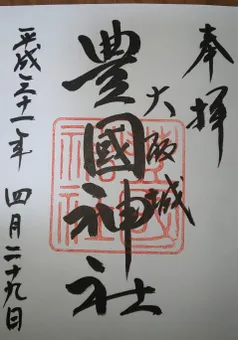 奉拝
大阪城
豊國神社
平成三十一年 四月二十九日